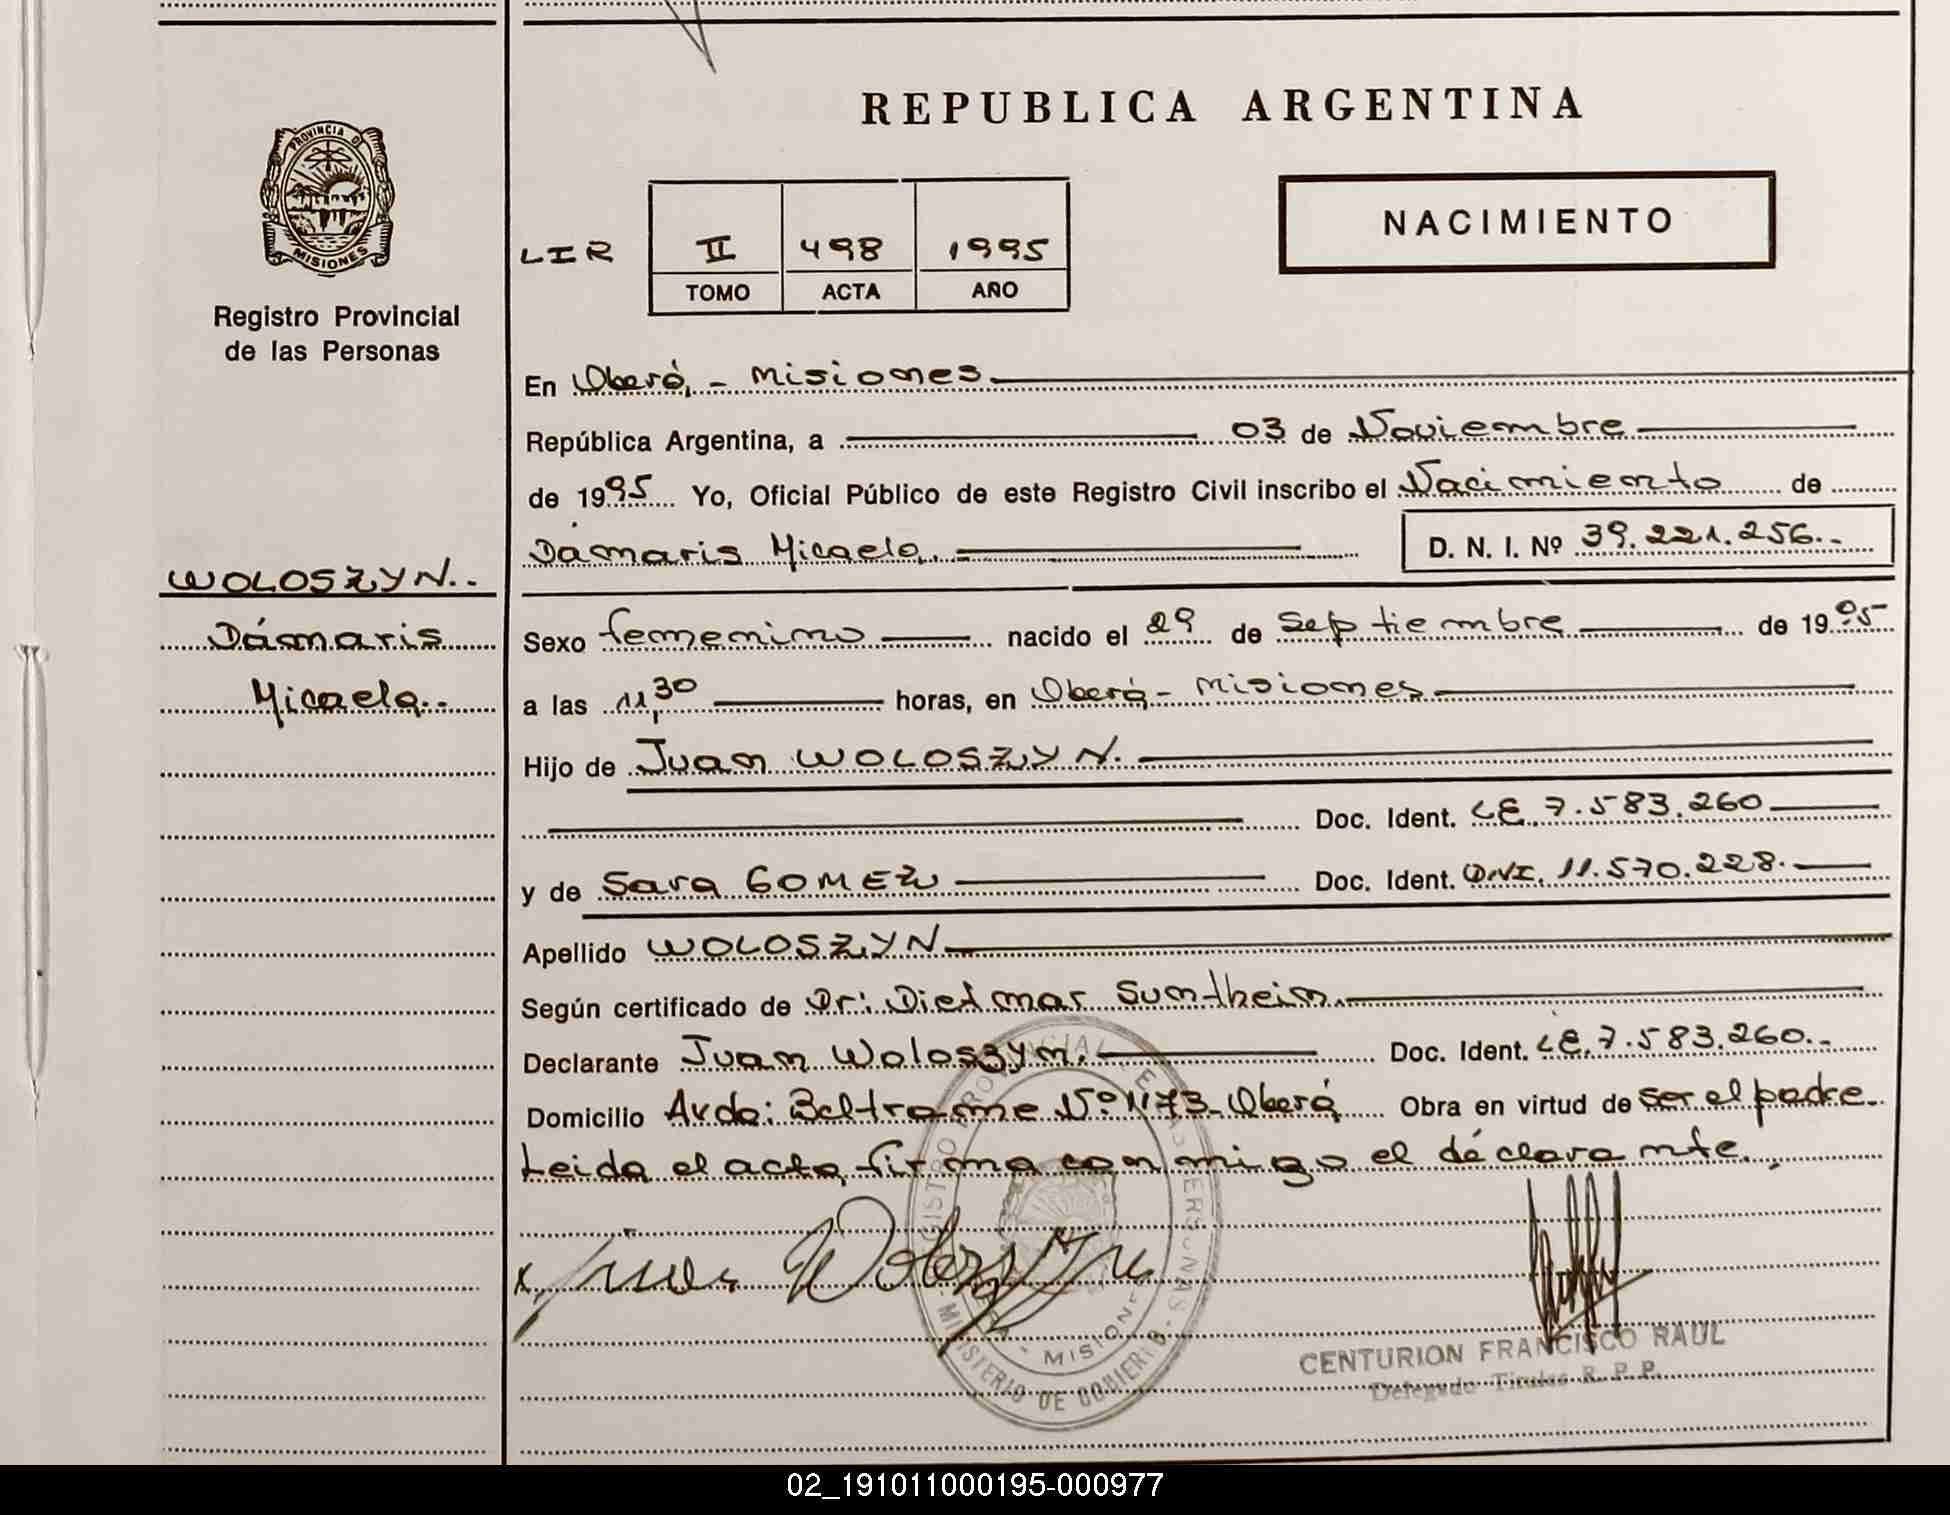 REPUBLICA ARGENTINA
PROVINCIA D
MISIONES
Registro Provincial
de las Personas
LIR II 498 1995
TOMO ACTA AÑO
NACIMIENTO
En Oberá, - Misiones
República Argentina, a 03 de Noviembre
de 1995 Yo, Oficial Público de este Registro Civil inscribo el Nacimiento de
Dámaris Micaela. D. N. I. Nº 39.221.256.-
WOLOSZYN..
Dámaris
Micaela..
Sexo femenino nacido el 29 de Septiembre de 1995
a las 11,30 horas, en Oberá - Misiones
Hijo de Juan WOLOSZYN.
Doc. Ident. LE. 7.583.260
y de Sara GOMEZ Doc. Ident. DNI. 11.570.228.
Apellido WOLOSZYN
Según certificado de Dr: Dietmar Sumtheim.
Declarante Juan Woloszyn. Doc. Ident. LE. 7.583.260.-
Domicilio Avda: Beltrame Nº 1173-Oberá Obra en virtud de ser el padre.
Leida el acta firma conmigo el declarante.
MINISTERIO DE GOBIERNO
MISIONES
CENTURION FRANCISCO RAUL
Delegado Titular R. P. P.
02_191011000195-000977